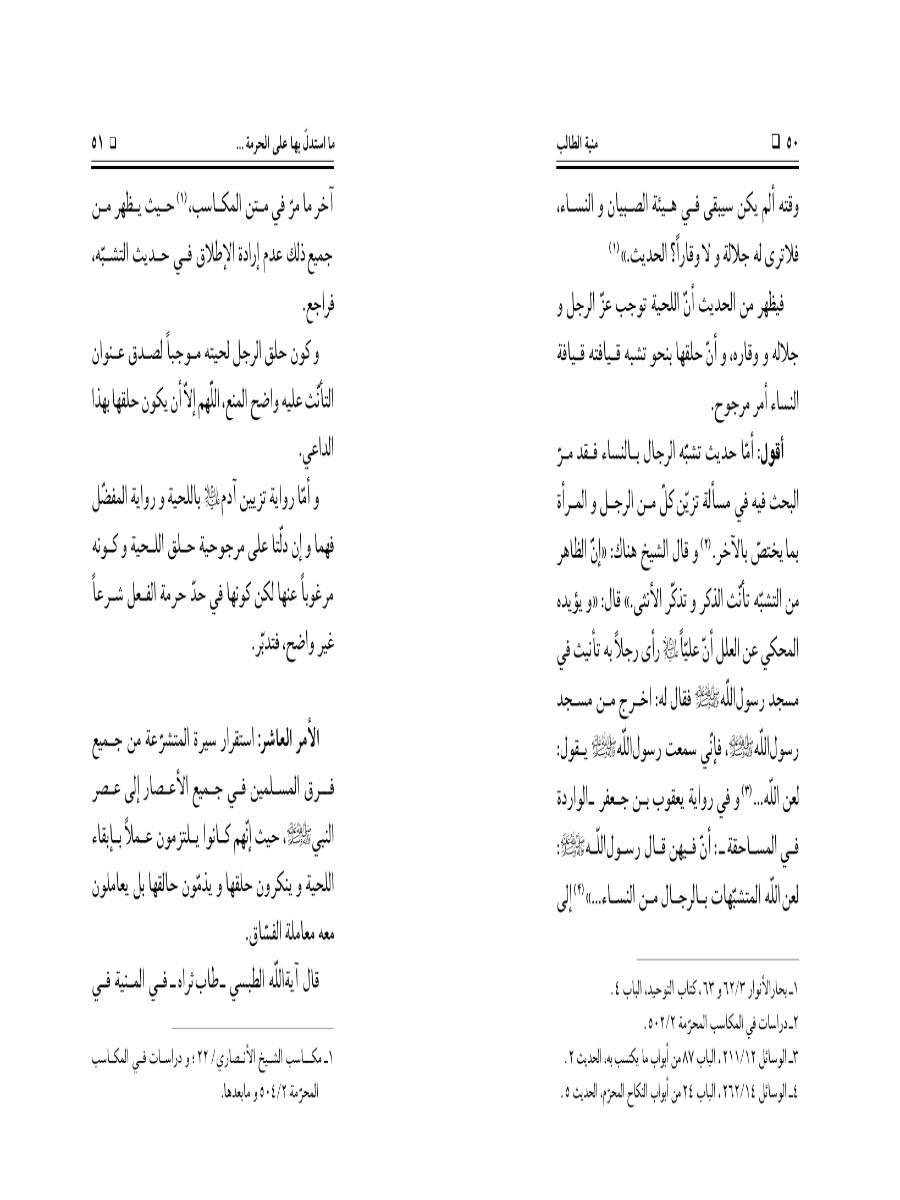 ٥٠ ❑ منية الطالب
وقته ألم يكن سيبقى في هيئة الصبيان و النساء،
فلاترى له جلالة و لا وقاراً؟ الحديث.»(١)
فيظهر من الحديث أنّ اللحية توجب عزّ الرجل و
جلاله و وقاره، و أنّ حلقها بنحو تشبه قيافته قيافة
النساء أمر مرجوح.
أقول: أمّا حديث تشبّه الرجال بالنساء فقد مرّ
البحث فيه في مسألة تزيّن كلّ من الرجل و المرأة
بما يختصّ بالآخر.(٢) و قال الشيخ هناك: «إنّ الظاهر
من التشبّه تأنّث الذكر و تذكّر الأنثى.» قال: «و يؤيده
المحكي عن العلل أنّ عليّاً عليه السلام رأى رجلاً به تأنيث في
مسجد رسول اللّه ﷺ فقال له: اخرج من مسجد
رسول اللّه ﷺ، فإنّي سمعت رسول اللّه ﷺ يقول:
لعن اللّه...(٣) و في رواية يعقوب بن جعفر ـ الواردة
في المساحقة ـ : أنّ فيهن قال رسول اللّه ﷺ:
لعن اللّه المتشبّهات بالرجال من النساء...»(۴) إلى
١ـ بحار الأنوار ٦٢/٣ و ٦٣، كتاب التوحيد، الباب ٤.
٢ـ دراسات في المكاسب المحرّمة ٥٠٢/٢.
٣ـ الوسائل ٢١١/١٢، الباب ٨٧ من أبواب ما يكتسب به، الحديث ٢.
٤ـ الوسائل ٢٦٢/١٤، الباب ٢٤ من أبواب النكاح المحرّم، الحديث ٥.
ما استدلّ بها على الحرمة ... ❑ ٥١
آخر ما مرّ في متن المكاسب،(١) حيث يظهر من
جميع ذلك عدم إرادة الإطلاق في حديث التشبّه،
فراجع.
و كون حلق الرجل لحيته موجباً لصدق عنوان
التأنّث عليه واضح المنع، اللّهم إلاّ أن يكون حلقها بهذا
الداعي.
و أمّا رواية تزيين آدم عليه السلام باللحية و رواية المفضّل
فهما و إن دلّتا على مرجوحية حلق اللحية و كونه
مرغوباً عنها لكن كونها في حدّ حرمة الفعل شرعاً
غير واضح، فتدبّر.
الأمر العاشر: استقرار سيرة المتشرّعة من جميع
فرق المسلمين في جميع الأعصار إلى عصر
النبي ﷺ، حيث إنّهم كانوا يلتزمون عملاً بإبقاء
اللحية و ينكرون حلقها و يذمّون حالقها بل يعاملون
معه معاملة الفسّاق.
قال آية اللّه الطبسي ـ طاب ثراه ـ في المنية في
١ـ مكاسب الشيخ الأنصاري/ ٢٢؛ و دراسات في المكاسب
المحرّمة ٥٠٤/٢ و مابعدها.